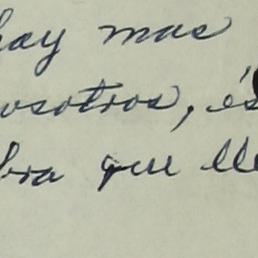 hay mas
osotros, és
bra que lle